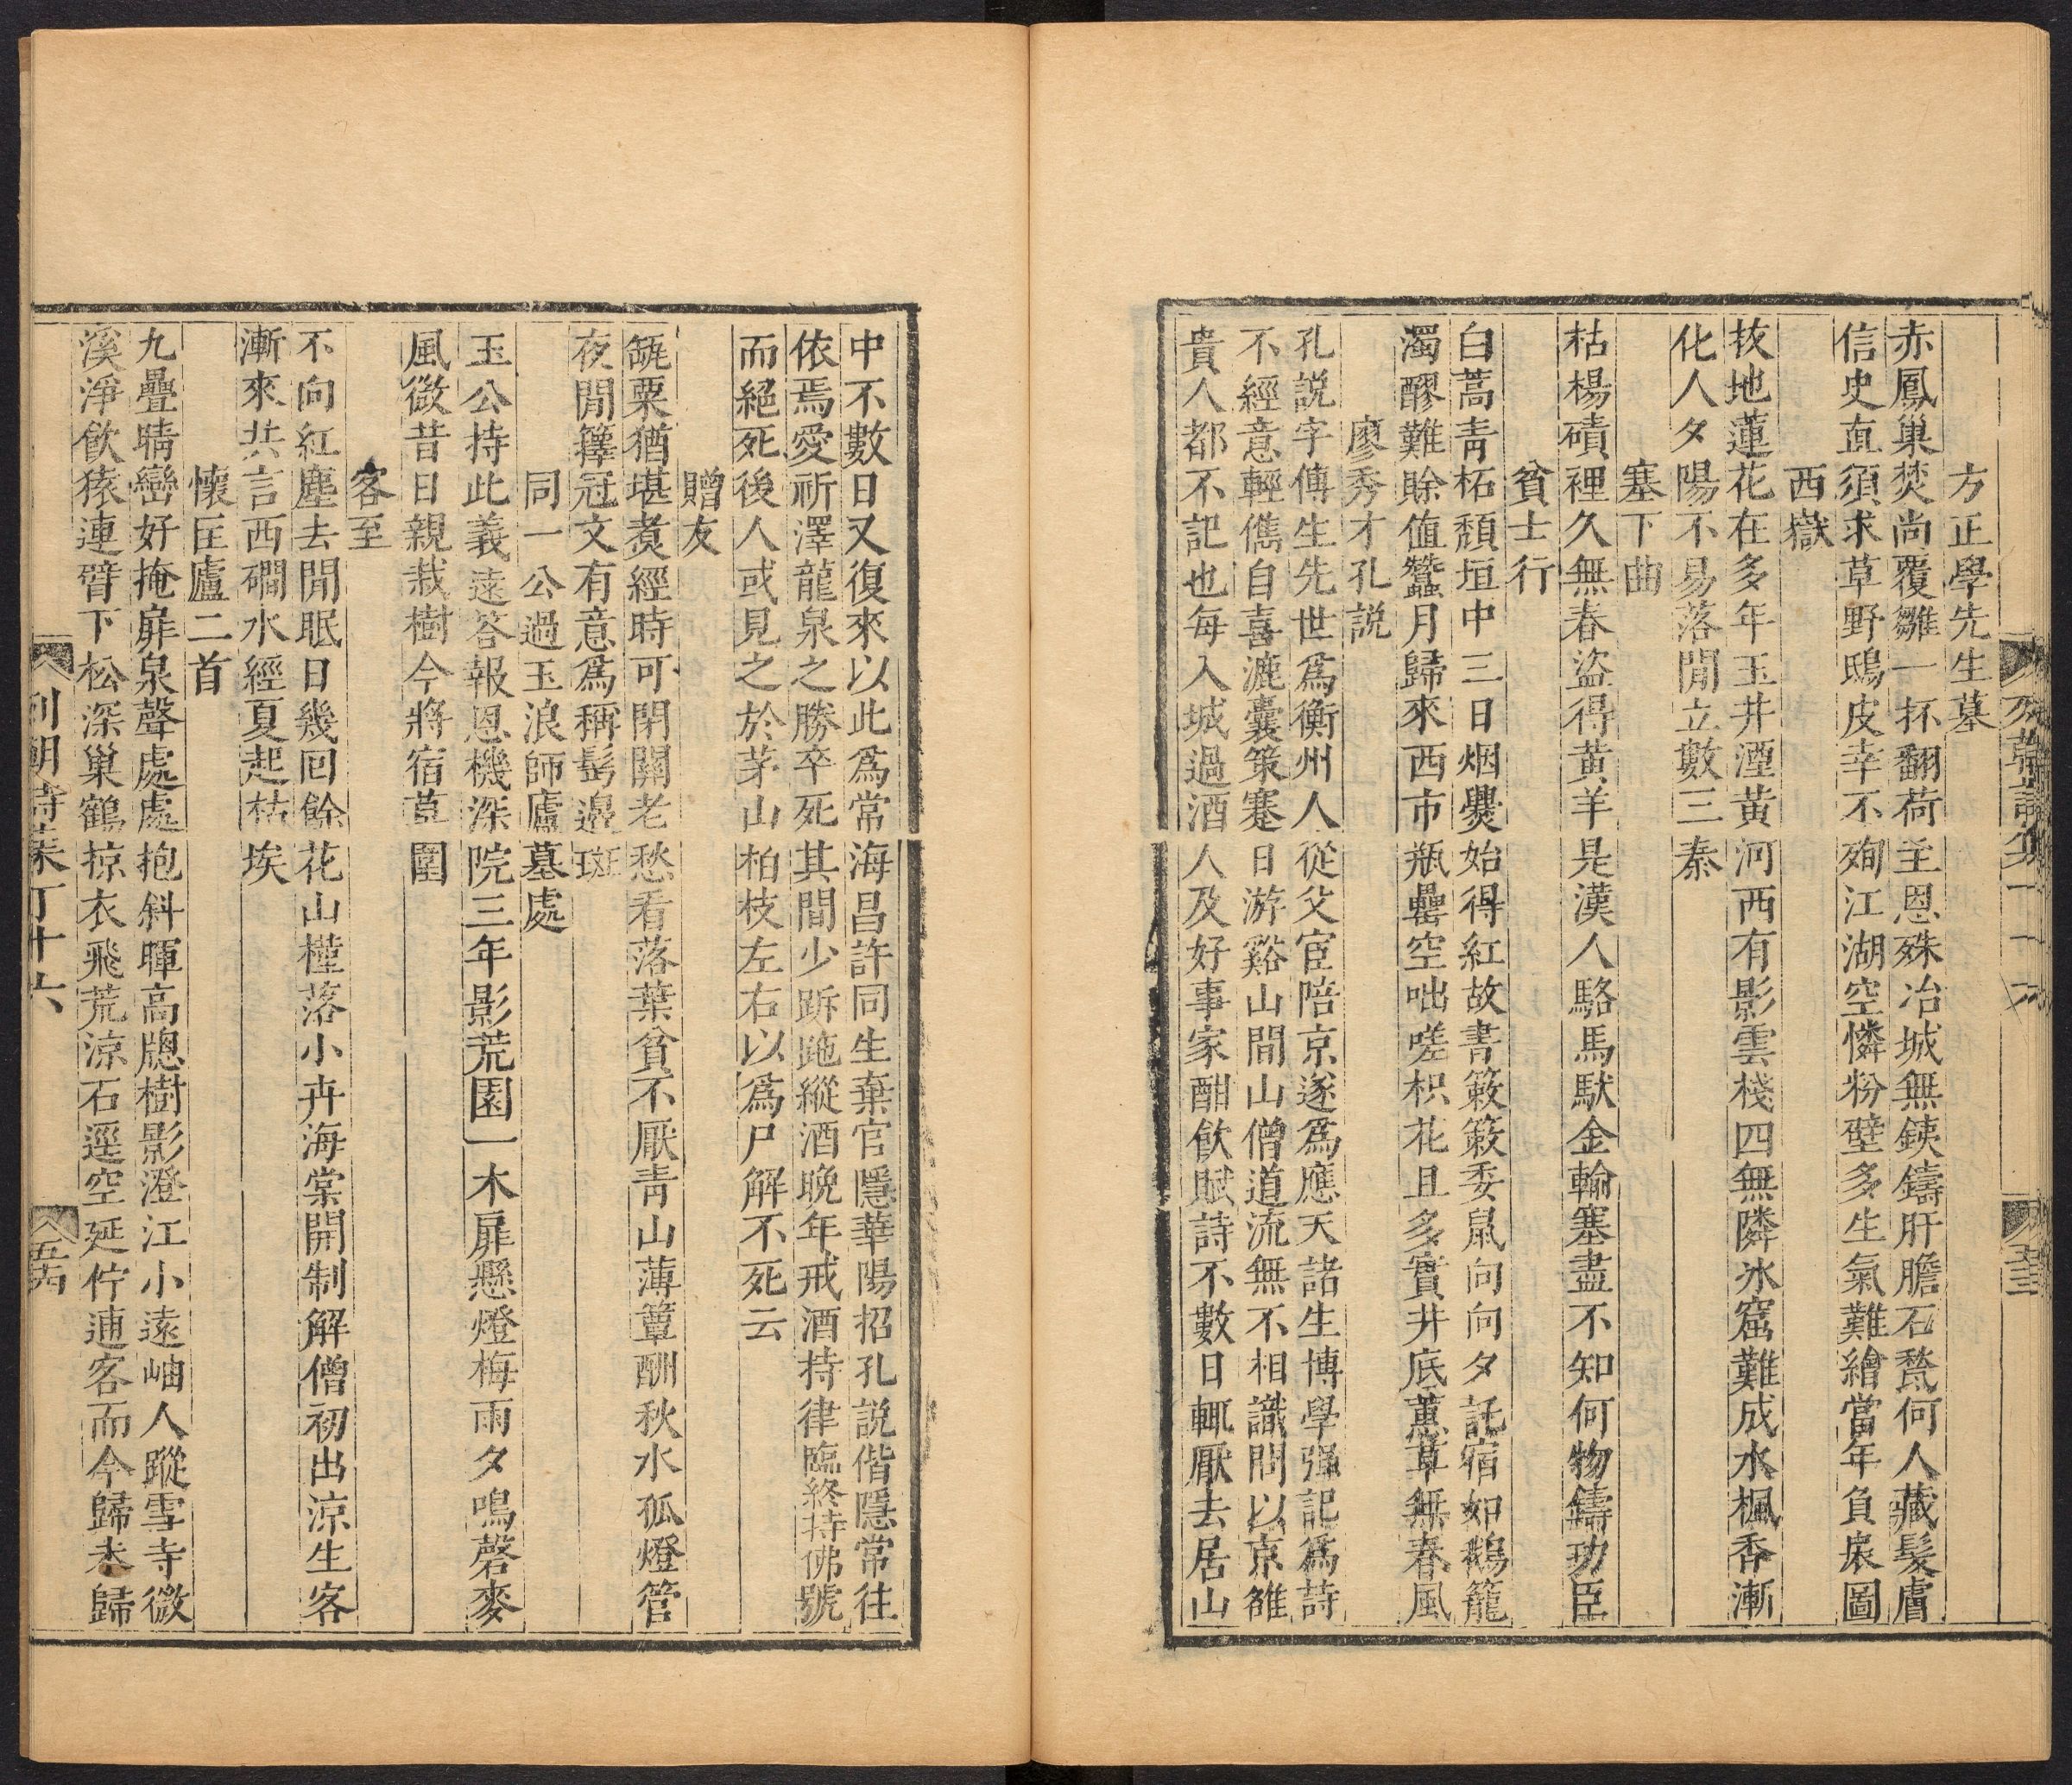 方正學先生墓
赤鳳巢焚尚覆雛一抔翻荷主恩殊冶城無鐵鑄肝膽石甃何人藏髮膚
信史直須求草野鴟皮幸不殉江湖空憐粉壁多生氣難繪當年負扆圖
西嶽
拔地蓮花在多年玉井湮黃河西有影雲棧四無隣氷窟難成水楓香漸
化人夕陽不易落閒立數三秦
塞下曲
枯楊磧裡久無春盜得黃羊是漢人駱馬馱金輸塞盡不知何物鑄功臣
貧士行
白蒿靑柘頹垣中三日烟爨始得紅故書簌簌委鼠向向夕託宿如鵝籠
濁醪難賒值蠶月歸來西市瓶罍空咄嗟枳花且多實井底薫草無春風
廖秀才孔説
孔説字傳生先世爲衡州人從父宦陪京遂爲應天諸生博學强記爲詩
不經意輕儁自喜漉囊策蹇日游谿山間山僧道流無不相識問以京雒
貴人都不記也每入城過酒人及好事家酣飲賦詩不數日輒厭去居山
中不數日又復來以此爲常海昌許同生棄官隱華陽招孔説偕隱常往
依焉愛祈澤龍泉之勝卒死其間少跅跪縱酒晚年戒酒持律臨終持佛號
而絕死後人或見之於茅山柏枝左右以爲尸解不死云
贈友
缾粟猶堪煑經時可閉關老愁看落葉貧不厭靑山薄簟酬秋水孤燈管
夜閒籜冠文有意爲稱髩邊斑
同一公過玉浪師廬墓處
玉公持此義遠答報恩機深院三年影荒園一木扉懸燈梅雨夕鳴磬麥
風微昔日親栽樹今將宿草圍
客至
不向紅塵去閒眠日幾回餘花山槿落小卉海棠開制解僧初出涼生客
漸來共言西磵水經夏起枯埃
懷匡廬二首
九疊晴巒好掩扉泉聲處處抱斜暉高牕樹影澄江小遠岫人蹤雪寺微
溪淨飮猿連臂下松深巢鶴掠衣飛荒涼石逕空延佇逋客而今歸未歸
列朝詩集丁十六
五十六